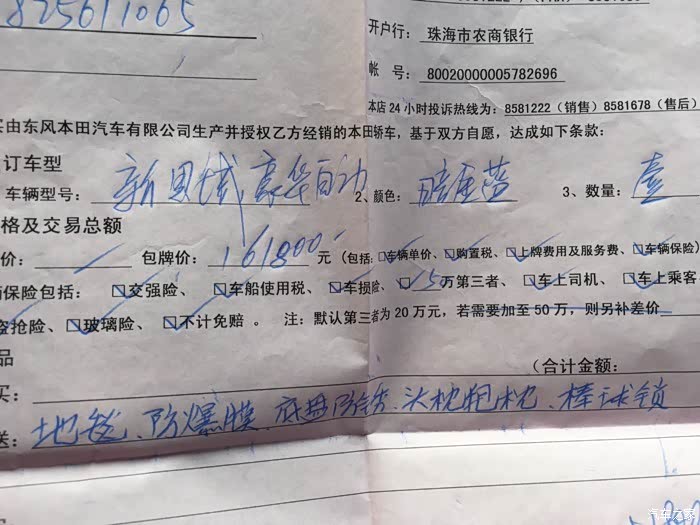 825611065
开户行: 珠海市农商银行
帐 号: 80020000005782696
本店24小时投诉热线为: 8581222 (销售) 8581678 (售后)
由东风本田汽车有限公司生产并授权乙方经销的本田轿车, 基于双方自愿, 达成如下条款:
订车型
车辆型号: 新思域豪华自动 2、颜色: 暗蓝 3、数量: 壹
格及交易总额
价: 包牌价: 161800 元 (包括: ☑车辆单价、☑购置税、☑上牌费用及服务费、☑车辆保险)
保险包括: ☑交强险、☑车船使用税、☑车损险、☑ 5 万第三者、☑车上司机、☑车上乘客
盗抢险、☑玻璃险、☑不计免赔 。 注: 默认第三者为 20 万元, 若需要加至 50 万, 则另补差价
品
买: (合计金额:
送: 地毯、防爆膜、底盘防锈、头枕抱枕、棒球锁
汽车之家